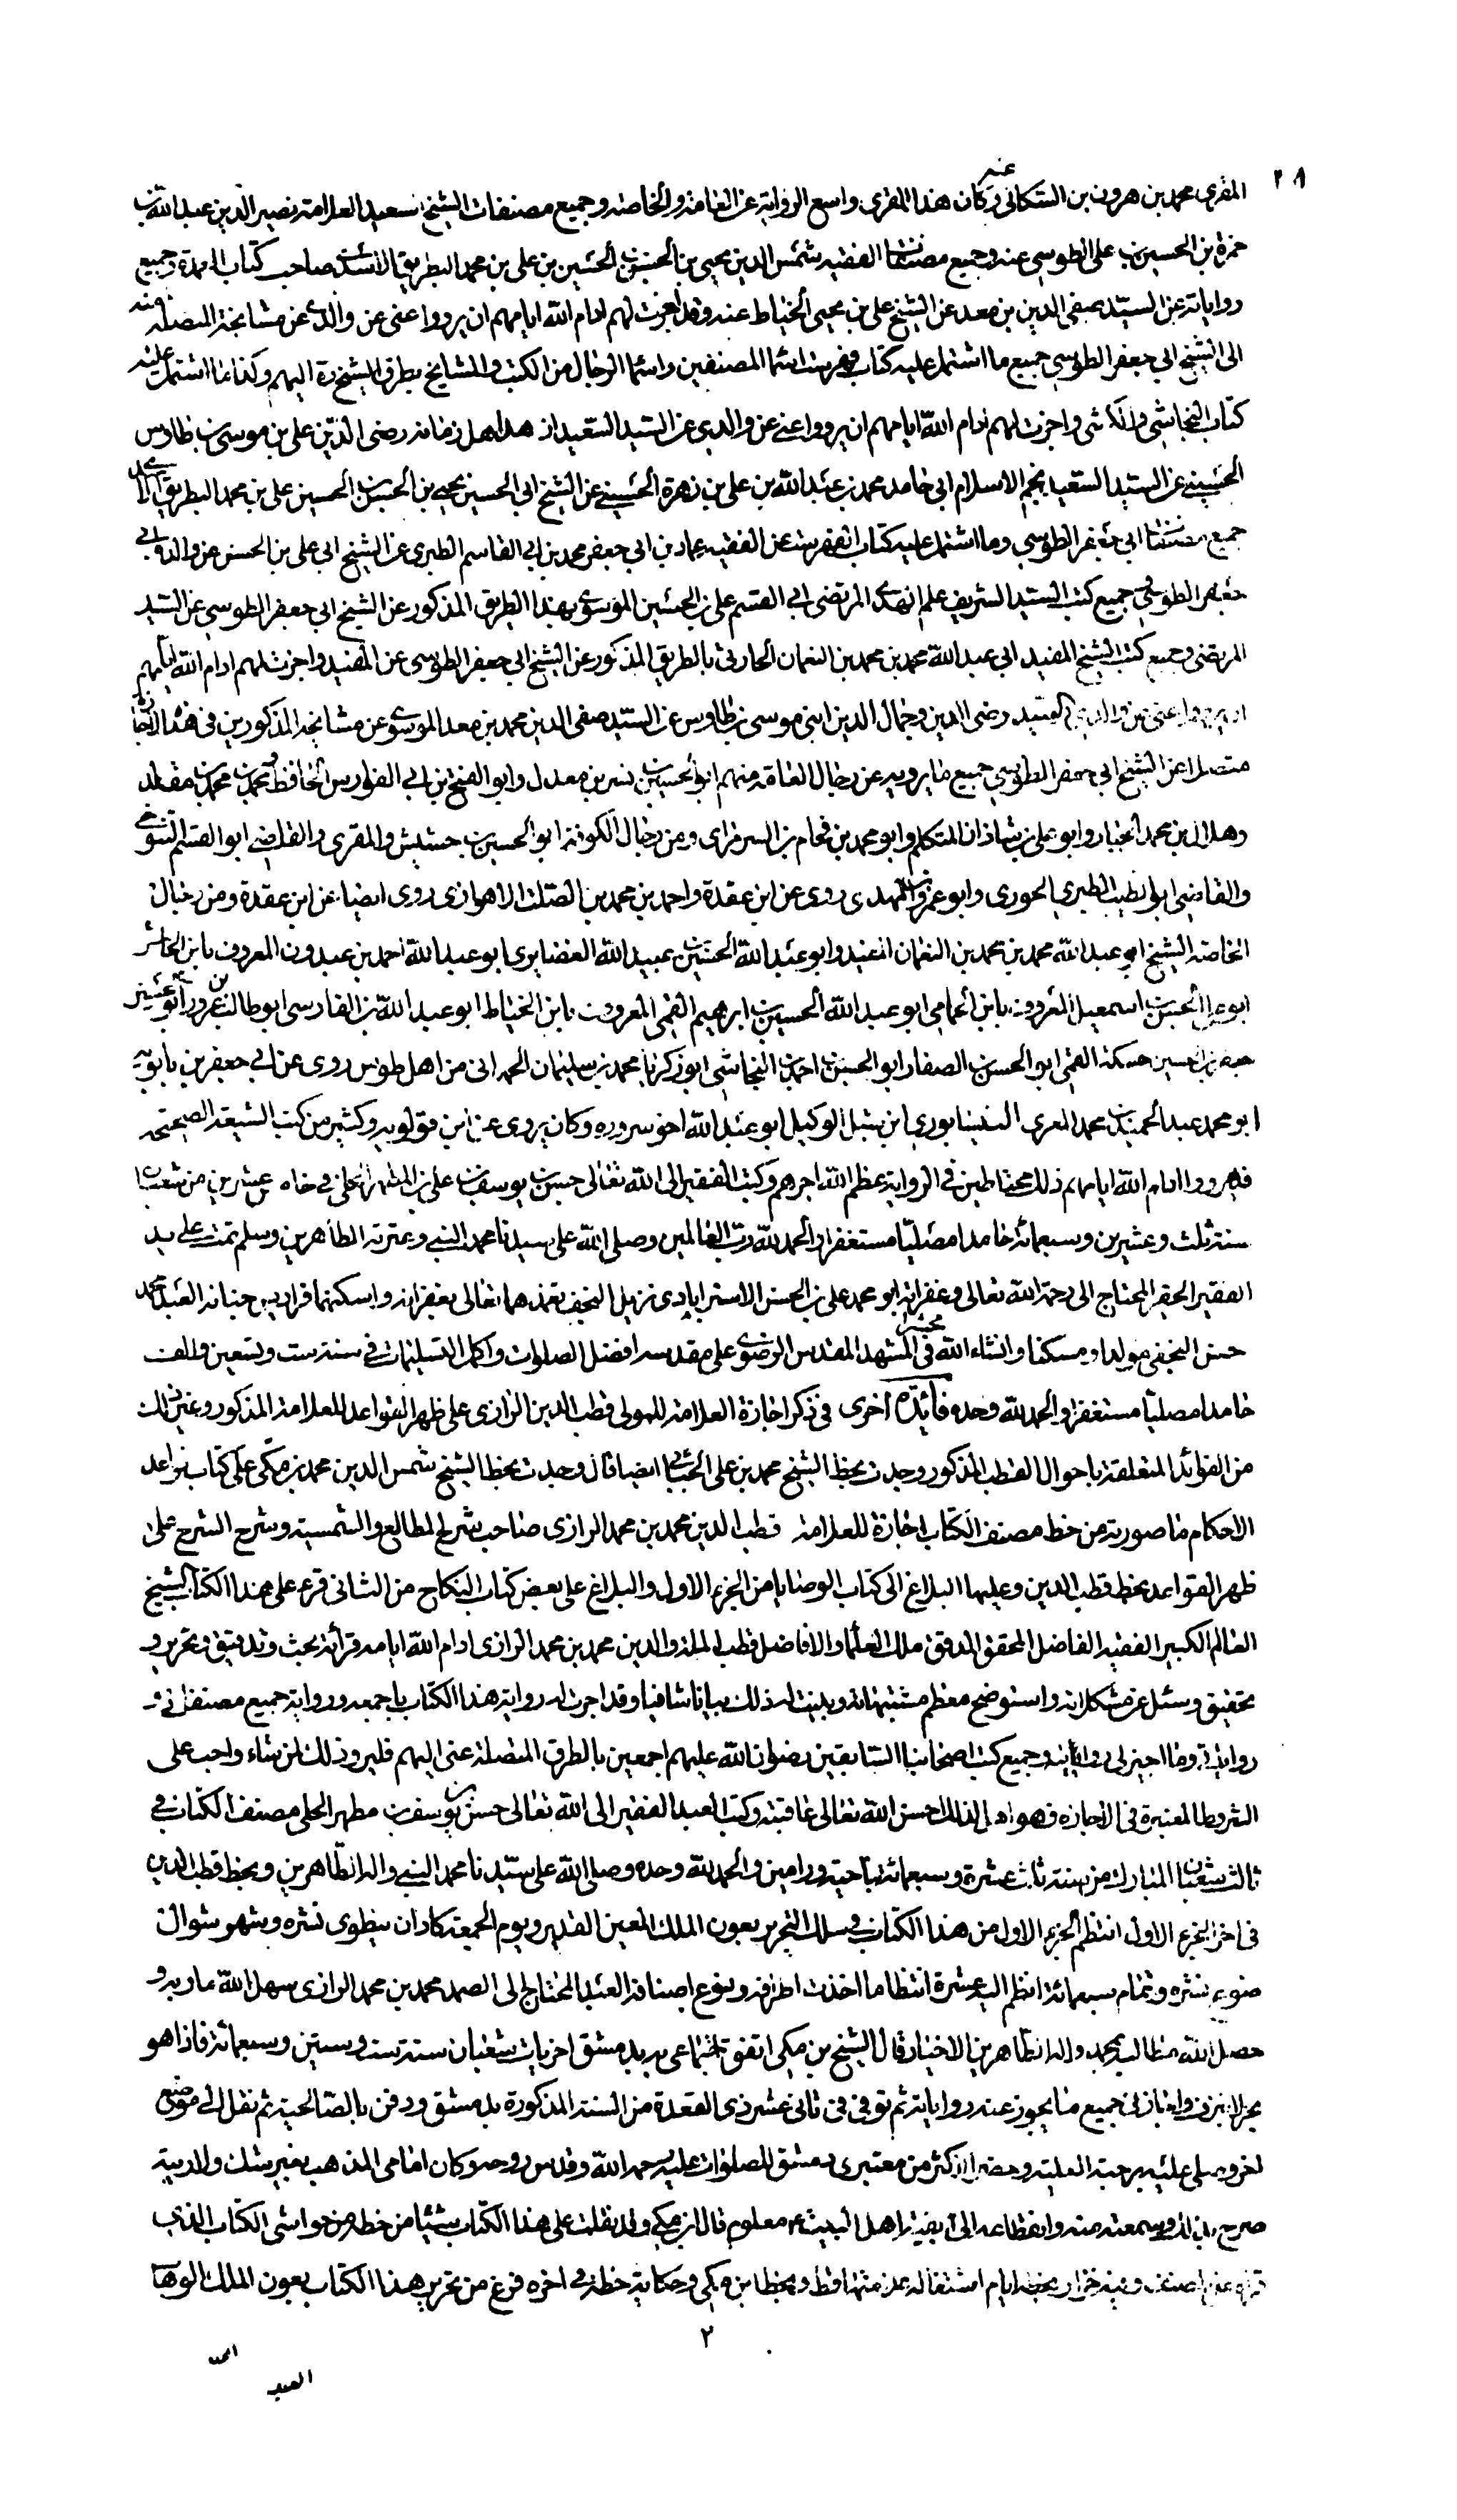 ٢٨
المقرى محمد بن هرون بن الكتانى عنه وكان هذا المقرى واسع الرواية عن العامة والخاصة وجميع مصنفات الشيخ السعيد العلامة نصير الدين عبد الله بن
حمزة بن الحسين بن على الطوسي عنه وجميع مصنفات الفقيه شمس الدين محيى بن الحسن بن الحسين بن على بن محمد البطريق الاسدى صاحب كتاب العمدة وجميع
رواياته عن السيد صفى الدين بن معد عن الشيخ على بن محيى الخياط عنه وقد اجزت لهم ادام الله ايامهم ان يرووا عنى عن والدى عن مشايخه المتصلة منه
الى الشيخ ابي جعفر الطوسي جميع ما اشتمل عليه كتاب فهرست اسما المصنفين واسما الرجال من الكتب والمشايخ بطرق الشيخ ره اليهم وكذا ما اشتمل عليه
كتاب النجاشي والكشى واجزت لهم ادام الله ايامهم ان يرووا عنى عن والدي عن السيد السعيد ازهد اهل زمانه رضى الدين على بن موسى بن طاوس
الحسيني عن السيد السعيد نجم الاسلام ابي حامد محمد بن عبد الله بن على بن زهرة الحسيني عن الشيخ ابي الحسين يحيي بن الحسن بن الحسين على بن محمد البطريق الاسدي
جميع مصنفات ابي جعفر الطوسي وما اشتمل عليه كتاب الفهرست عن الفقيه عماد بن ابي جعفر محمد بن ابي القاسم الطبرى عن الشيخ ابي على بن الحسن عن والده ابي
جعفر الطوسي وجميع كتب السيد الشريف علم الهدى المرتضى ابي القسم على بن الحسين الموسوى بهذا الطريق المذكور عن الشيخ ابي جعفر الطوسي عن السيد
المرتضى وجميع كتب الشيخ المفيد ابي عبد الله محمد بن محمد بن النعمان الحارثى بالطريق المذكور عن الشيخ ابي جعفر الطوسى عن المفيد واجزت لهم ادام الله ايامهم
ان يرووا عنى عن والدي السيد رضى الدين وجمال الدين ابنى موسى بن طاوس عن السيد صفى الدين محمد بن معد الموسوى عن مشايخه المذكورين فى هذه الاجازة
متصلا عن الشيخ ابي جعفر الطوسي جميع ما يرويه عن رجال العامة منهم ابو الحسين بن بشر بن معدل وابو الفتح بن ابي الفوارس الحافظ ومحمد بن محمد بن مقلد
وهلال بن محمد الحفار وابو على بن شاذان المتكلم وابو محمد بن فحام بن السرمراى ومن رجال الكوفة ابو الحسين بن خشيش والمقرى والقاضى ابو القسم التنوخى
والقاضي ابو الطيب الطبري الحورى وابو عمرو بن المهدى روى عن ابن عقدة واحمد بن محمد بن الصلت الاهوازى روى ايضا عن ابن عقدة ومن رجال
الخاصة الشيخ ابو عبد الله محمد بن محمد بن النعمان المفيد وابو عبد الله الحسين بن عبيد الله الغضايرى ابو عبد الله احمد بن عبدون المعروف بابن الحاشر
ابو على الحسن بن اسمعيل المعروف بابن الحمامي ابو عبد الله الحسين بن ابرهيم القمى المعروف بابن الخياط ابو عبد الله بن الفارسى ابو طالب بن غرور ابو الحسين
جعفر بن الحسين حسكة القمى ابو الحسن بن الصفار ابو الحسين بن احمد بن النجاشى ابو زكريا محمد بن سليمان الحمدانى من اهل طوس روى عن ابي جعفر بن بابويه
ابو محمد عبد الحميد بن محمد المعرى النيسابورى ابن شبل الوكيل ابو عبد الله اخو سروره وكان يروى عن ابن قولويه وكثير من كتب الشيعة الصحيحة
فليرووا ادام الله ايامهم ذلك محتاطين فى الرواية عظم الله اجرهم وكتب الفقير الى الله تعالى حسن بن يوسف بن على بن المطهر الحلى فى خامس عشرين من شعبان
سنة ثلث وعشرين وسبعمائة حامدا مصليا مستغفرا والحمد لله رب العالمين وصلى الله على سيدنا محمد النبي وعترته الطاهرين وسلم تمت على يد
الفقير الحقير المحتاج الى رحمة الله تعالى وغفرانه ابو محمد على بن الحسن الاسترابادى نزيل النجف تغمدهما تعالى بغفرانه واسكنهما فراديس جنانه العبد محمد
حسن النجفى مولدا ومسكنا وانشاء الله محشرا فى المشهد المقدس الرضوى على مقدسه افضل الصلوات واكمل التسليمات فى سنة ست وتسعين والف
حامدا مصليا مستغفرا والحمد لله وحده فائدة اخرى فى ذكر اجازة العلامة للمولى قطب الدين الرازى على ظهر القواعد للعلامة المذكور وغير ذلك
من الفوائد المتعلقة باحوال القطب المذكور وجدت بخط الشيخ محمد بن على الجباعى ايضا قال وجدت بخط الشيخ شمس الدين محمد بن مكى على كتاب قواعد
الاحكام ما صورته من خط مصنف الكتاب اجازة للعلامة قطب الدين محمد بن محمد الرازى صاحب شرح المطالع والشمسية وشرح الشرح على
ظهر القواعد بخط قطب الدين وعليها البلاغ الى كتاب الوصايا من الجزء الاول والبلاغ على بعض كتاب النكاح من الثانى قرء على هذا الكتاب الشيخ
العالم الكبير الفقيه الفاضل المحقق المدقق ملك العلماء والافاضل قطب الملة والدين محمد بن محمد الرازى ادام الله ايامه قرائة بحث وتدقيق وتحرير و
تحقيق وسئل عن مشكلاته واستوضح معظم مشتبهاته وبينت له ذلك بيانا شافيا وقد اجزت له رواية هذا الكتاب باجمعه ورواية جميع مصنفاتى و
رواياتى وما اجيز لى روايته وجميع كتب اصحابنا السابقين رضوان الله عليهم اجمعين بالطرق المتصلة عنى اليهم فليرو ذلك لمن شاء واحب على
الشروط المعتبرة فى الاجازة فهو اهل لذلك احسن الله تعالى عاقبته وكتب العبد الفقير الى الله تعالى حسن بن يوسف بن مطهر الحلى مصنف الكتاب فى
ثالث شعبان المبارك من سنة ثلث عشرة وسبعمائة بناحية ورامين والحمد لله وحده وصلى الله على سيدنا محمد النبي واله الطاهرين وبخط قطب الدين
فى اخر الجزء الاول انتظم الجزء الاول من هذا الكتاب فى سلك التحرير بعون الملك المعين القدير ويوم الجمعة كاد ان ينطوى نشره وشهر شوال
ضوع نشره وتمام سبعمائة انظم اليه عشرة انتظاما اخذت اطرافه وبنوع اصنافه العبد المحتاج الى الصمد محمد بن محمد الرازى سهل الله ماربه و
حصل الله مطالبه بمحمد واله الطاهرين الاخيار قال الشيخ بن مكى اتفق اجتماعى به بدمشق اخريات شعبان سنة ست وستين وسبعمائة فاذا هو
بحر لا ينزف واجازنى جميع ما يجوز عنه رواياته ثم توفى فى ثانى عشر ذى القعدة من السنة المذكورة بدمشق ودفن بالصالحية ثم نقل الى موضع
اخر وصلى عليه برحبة القلعة وحضر الاكثر من معتبرى دمشق للصلوات عليه رحمه الله وقدس روحه وكان امامى المذهب بغير شك ولا ريبة
صرح بذلك وسمعته منه وانقطاعه الى بقية اهل البيت ع معلوم قال ابن مكي وقد نقلت على هذا الكتاب شيئا من خطه من حواشى الكتاب الذى
قرأه على المصنف وفيه حزاز بخطه ايام اشتغاله عليه منها فقط وبخط ابن مكي وحكاية خطه فى اخره فرغ من تحرير هذا الكتاب بعون الملك الوهاب
٢
العبد